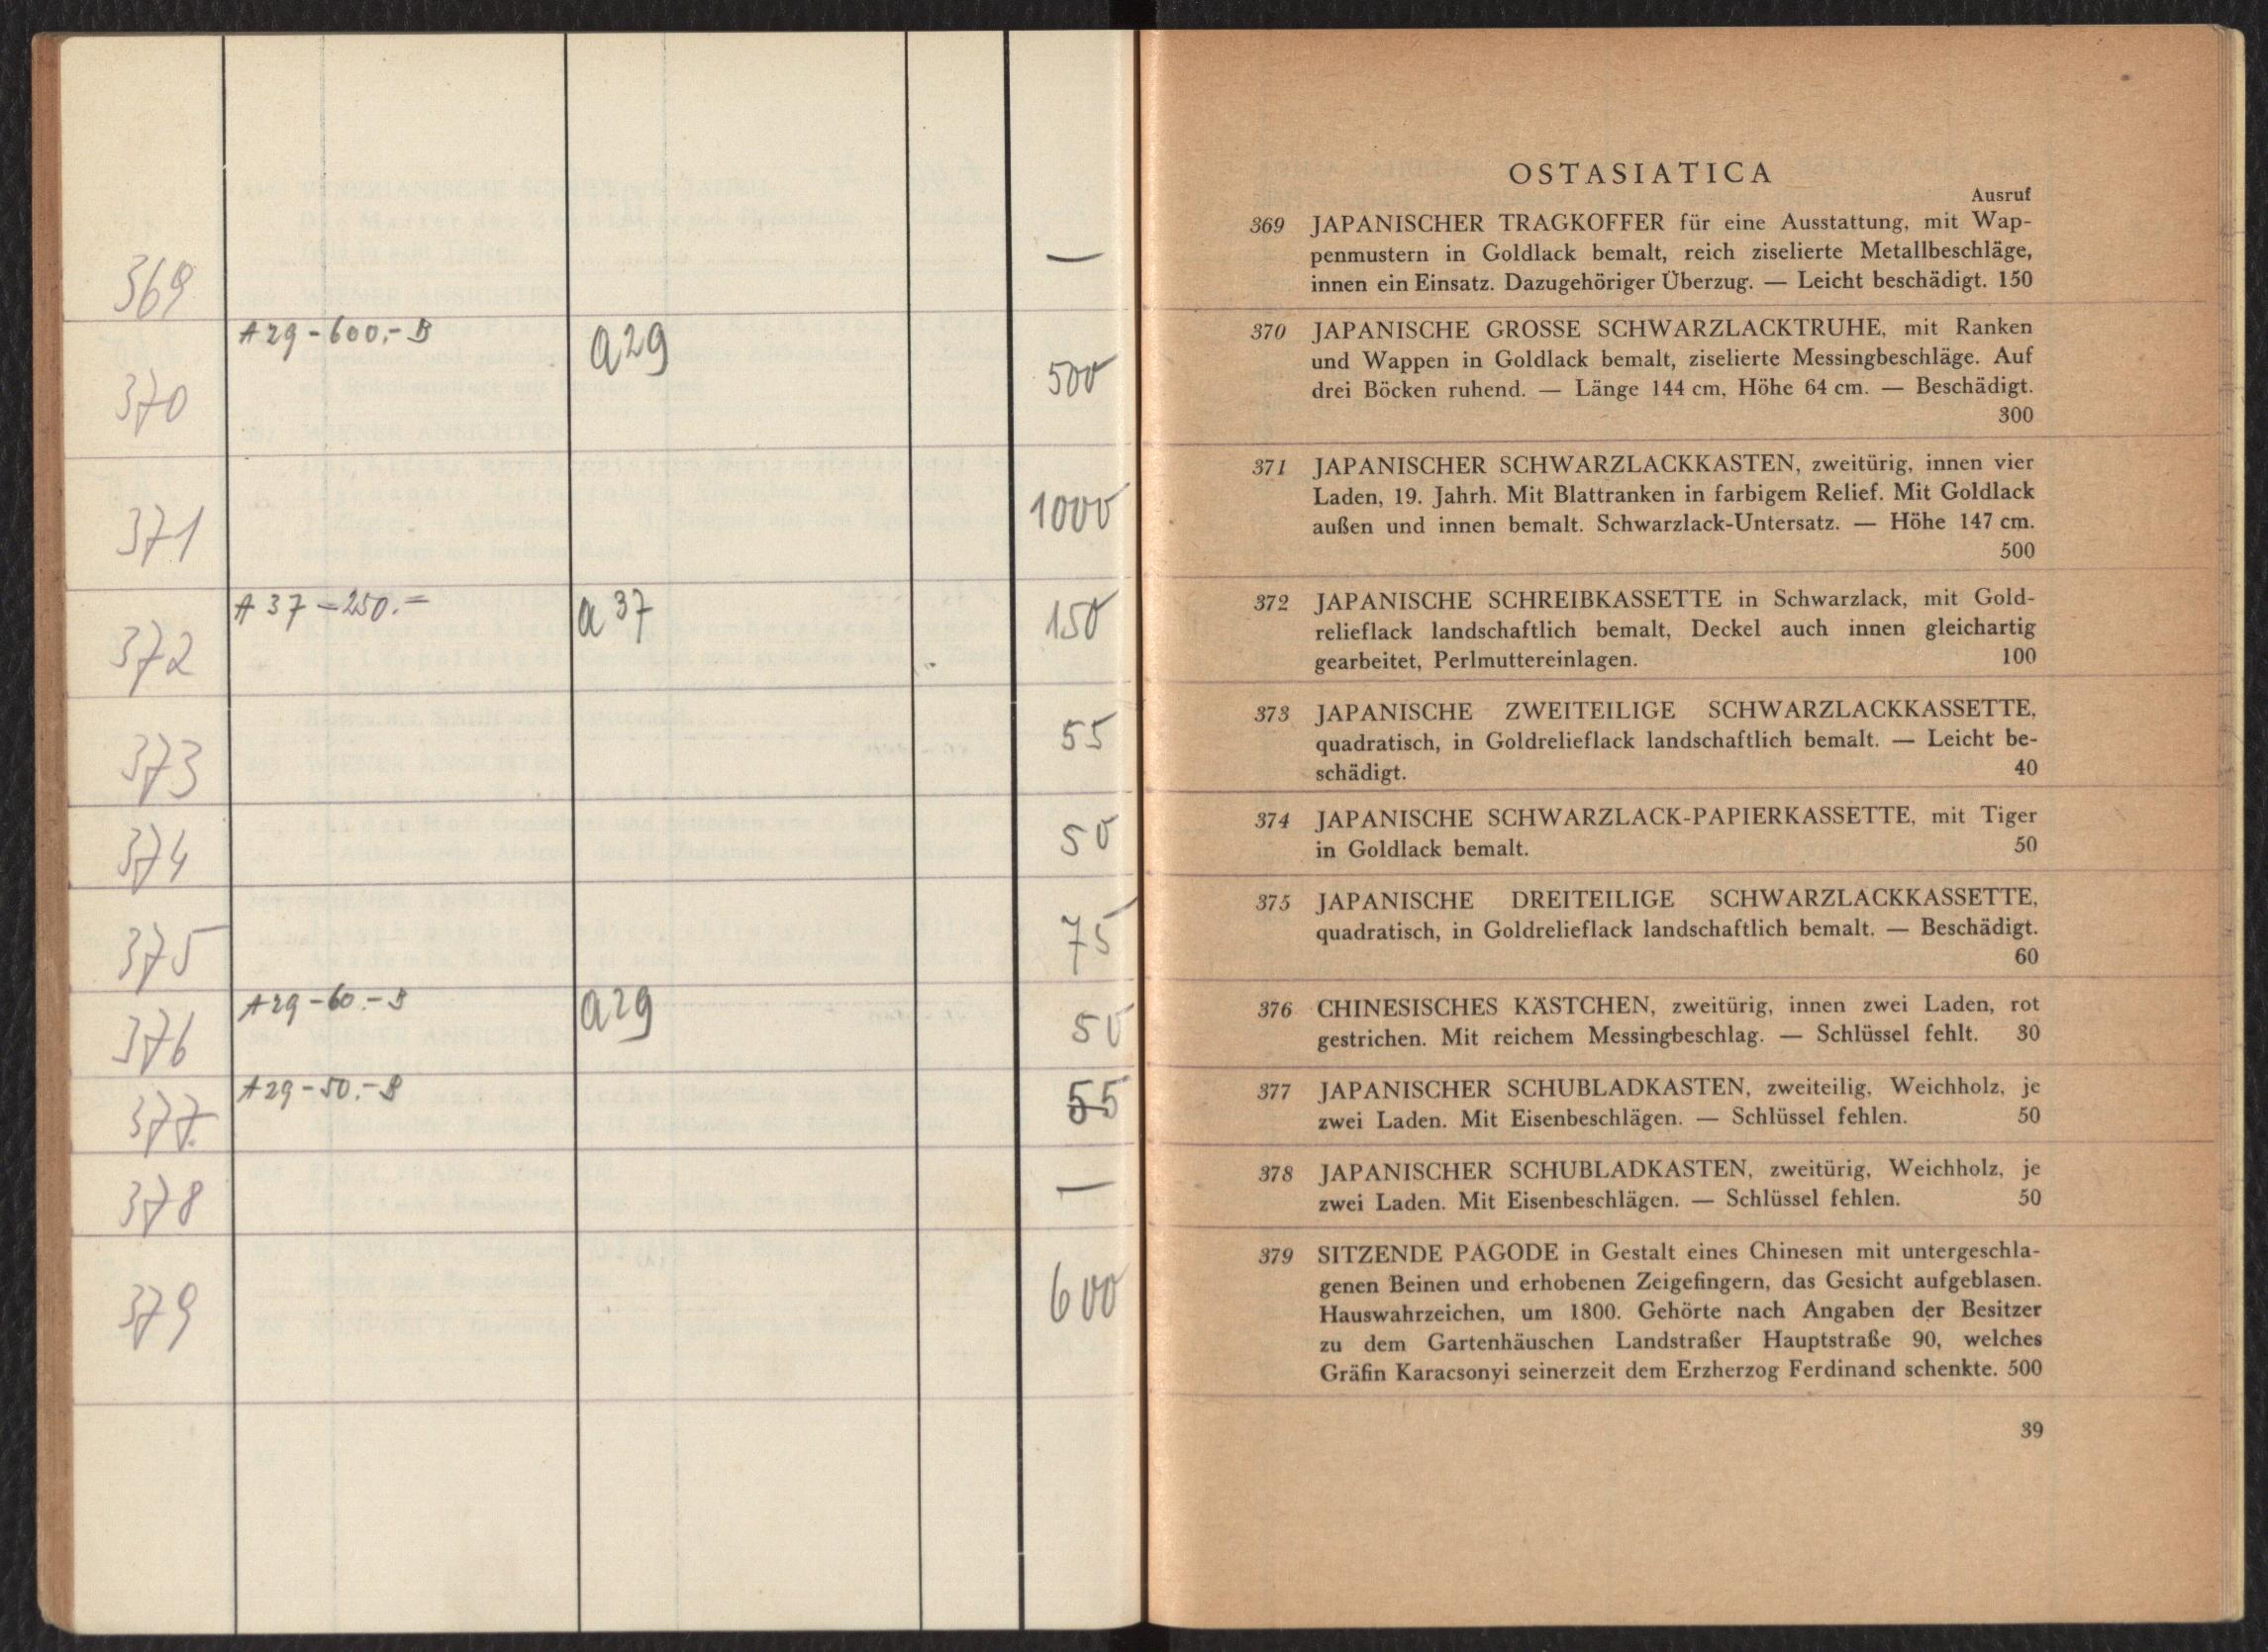 369
—
A 29 - 600.- B
a 29
370
500
371
1000
A 37 - 250.=
a 37
372
150
373
55
374
50
375
75
A 29 - 60.- B
a 29
376
50
A 29 - 50.- B
377
55
378
—
379
600
OSTASIATICA
Ausruf
369 JAPANISCHER TRAGKOFFER für eine Ausstattung, mit Wap-
penmustern in Goldlack bemalt, reich ziselierte Metallbeschläge,
innen ein Einsatz. Dazugehöriger Überzug. — Leicht beschädigt. 150
370 JAPANISCHE GROSSE SCHWARZLACKTRUHE, mit Ranken
und Wappen in Goldlack bemalt, ziselierte Messingbeschläge. Auf
drei Böcken ruhend. — Länge 144 cm, Höhe 64 cm. — Beschädigt.
300
371 JAPANISCHER SCHWARZLACKKASTEN, zweitürig, innen vier
Laden, 19. Jahrh. Mit Blattranken in farbigem Relief. Mit Goldlack
außen und innen bemalt. Schwarzlack-Untersatz. — Höhe 147 cm.
500
372 JAPANISCHE SCHREIBKASSETTE in Schwarzlack, mit Gold-
relieflack landschaftlich bemalt, Deckel auch innen gleichartig
gearbeitet, Perlmuttereinlagen. 100
373 JAPANISCHE ZWEITEILIGE SCHWARZLACKKASSETTE,
quadratisch, in Goldrelieflack landschaftlich bemalt. — Leicht be-
schädigt. 40
374 JAPANISCHE SCHWARZLACK-PAPIERKASSETTE, mit Tiger
in Goldlack bemalt. 50
375 JAPANISCHE DREITEILIGE SCHWARZLACKKASSETTE,
quadratisch, in Goldrelieflack landschaftlich bemalt. — Beschädigt.
60
376 CHINESISCHES KÄSTCHEN, zweitürig, innen zwei Laden, rot
gestrichen. Mit reichem Messingbeschlag. — Schlüssel fehlt. 30
377 JAPANISCHER SCHUBLADKASTEN, zweiteilig, Weichholz, je
zwei Laden. Mit Eisenbeschlägen. — Schlüssel fehlen. 50
378 JAPANISCHER SCHUBLADKASTEN, zweitürig, Weichholz, je
zwei Laden. Mit Eisenbeschlägen. — Schlüssel fehlen. 50
379 SITZENDE PAGODE in Gestalt eines Chinesen mit untergeschla-
genen Beinen und erhobenen Zeigefingern, das Gesicht aufgeblasen.
Hauswahrzeichen, um 1800. Gehörte nach Angaben der Besitzer
zu dem Gartenhäuschen Landstraßer Hauptstraße 90, welches
Gräfin Karacsonyi seinerzeit dem Erzherzog Ferdinand schenkte. 500
39